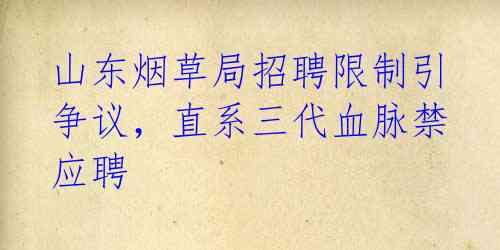 山东烟草局招聘限制引
争议，直系三代血脉禁
应聘